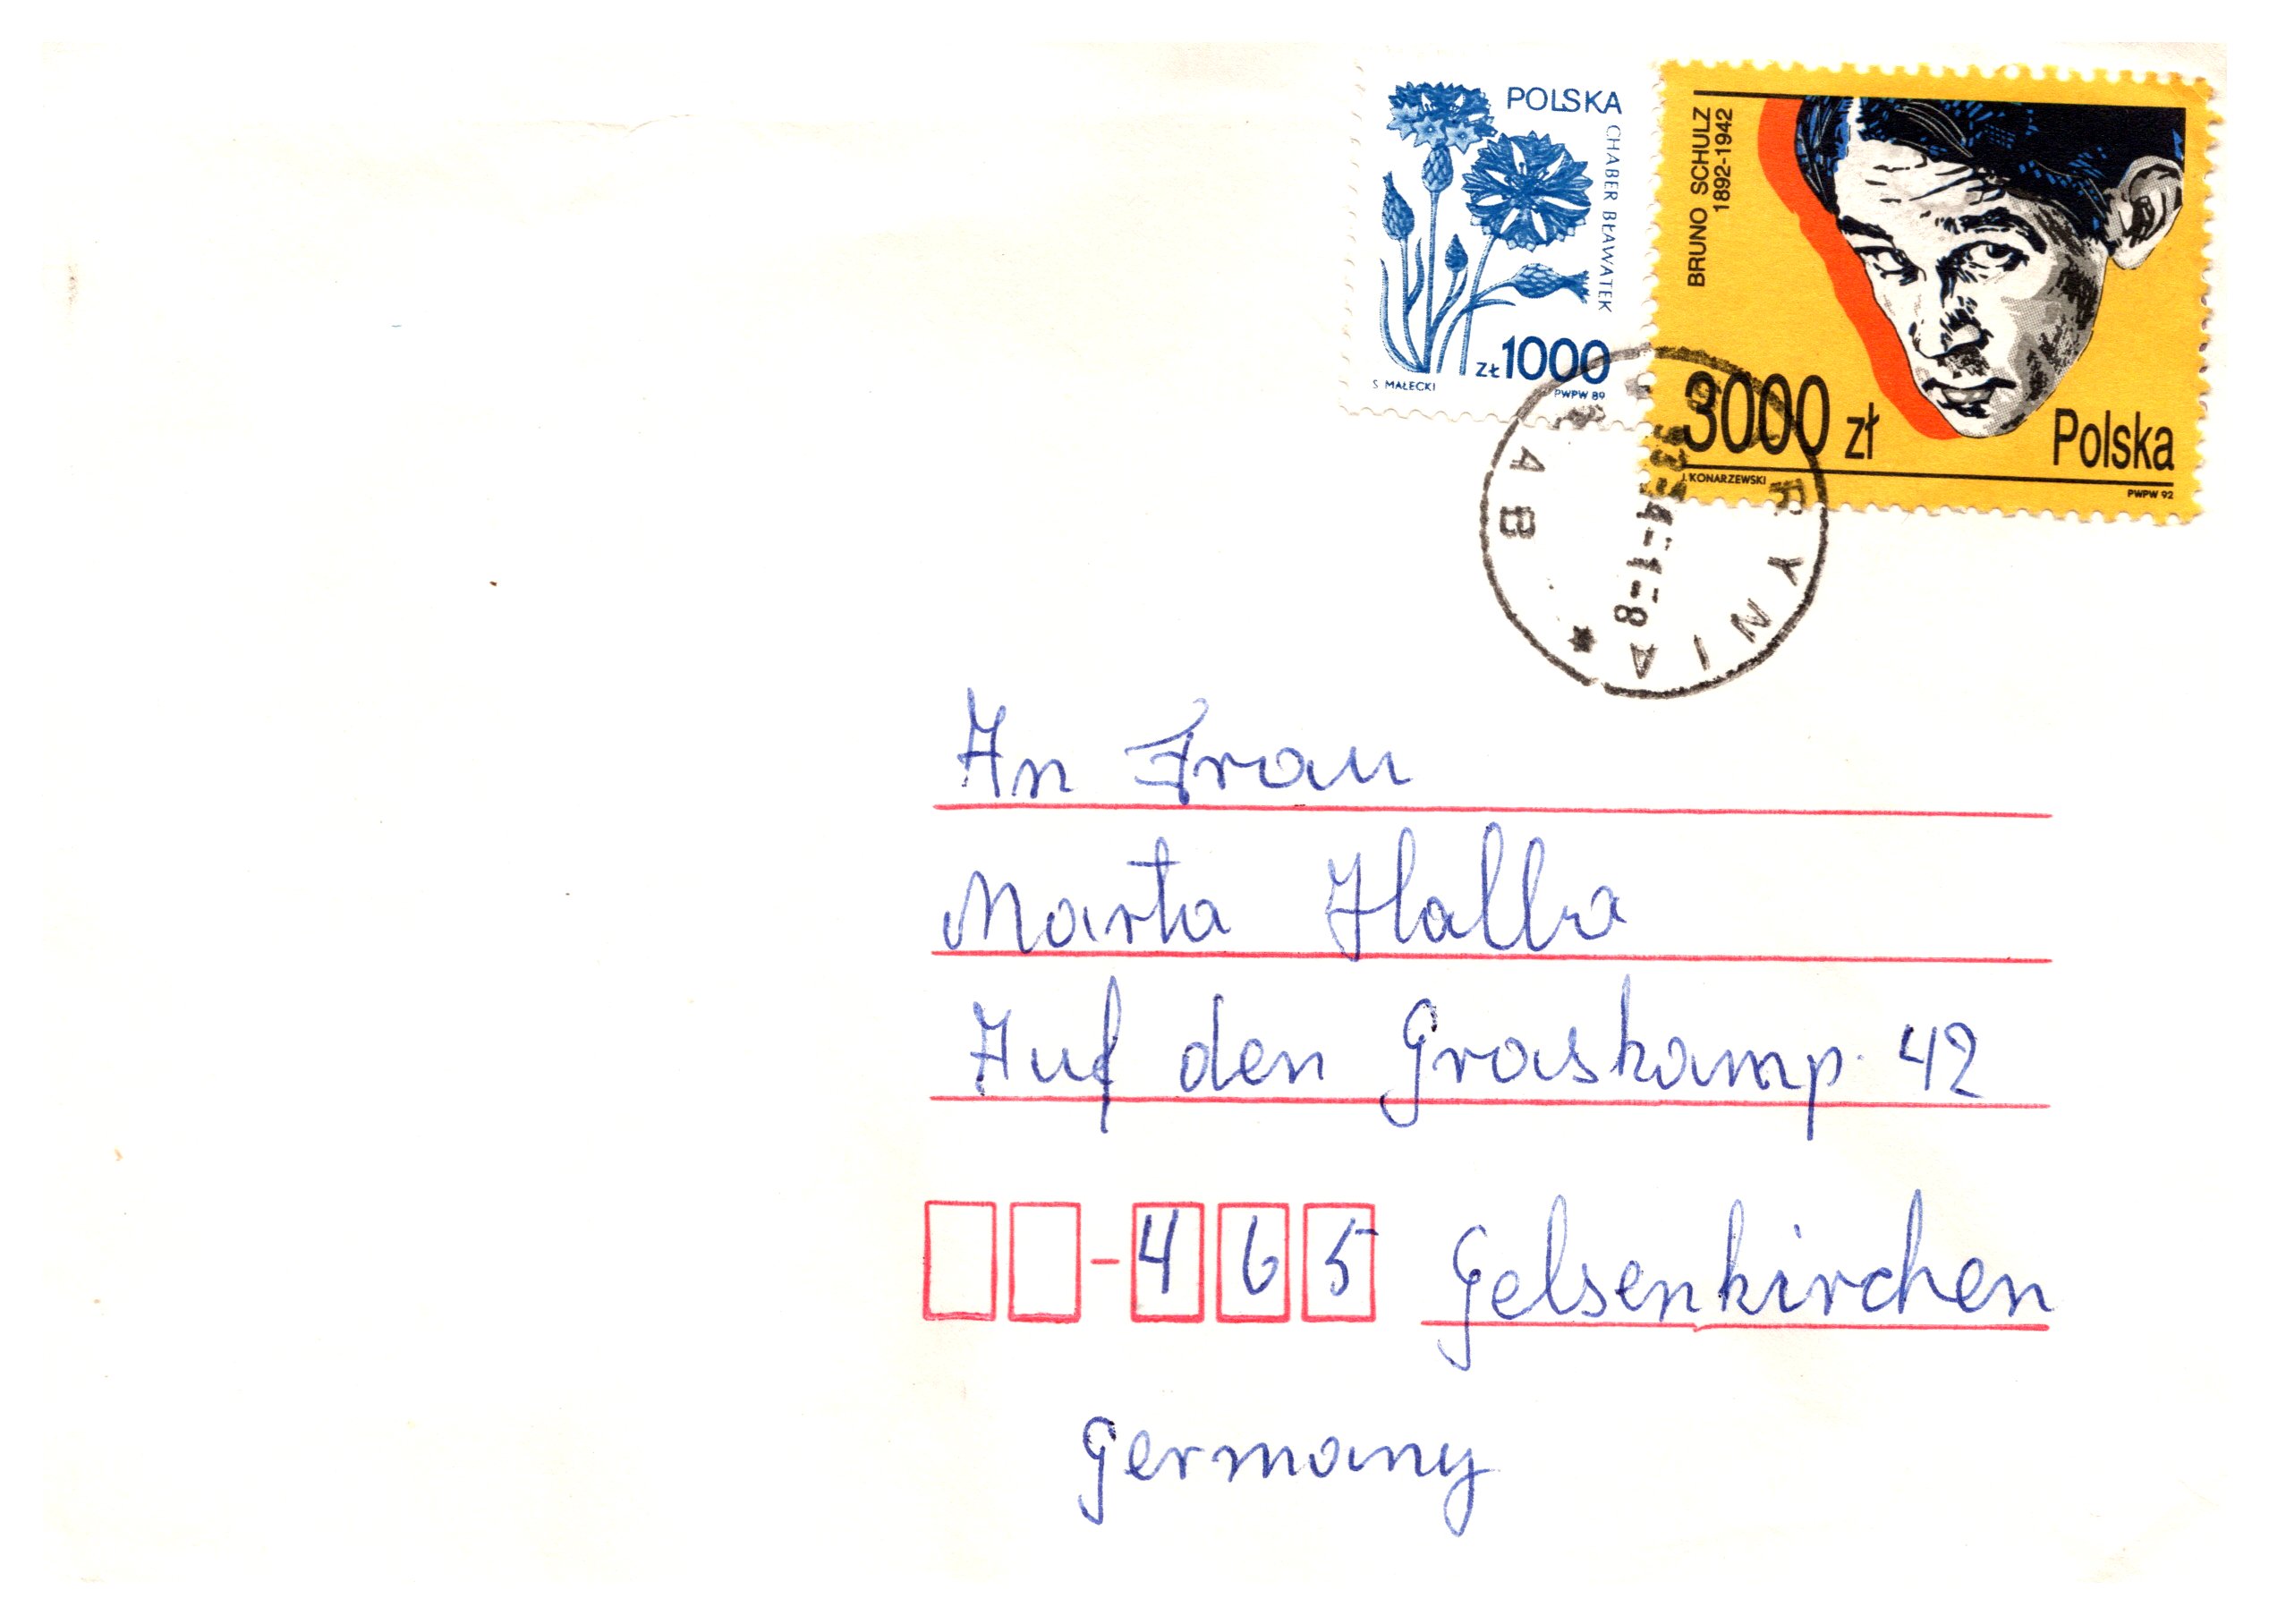 POLSKA
CHABER BŁAWATEK
ZŁ 1000
S MAŁECKI
PWPW 89
BRUNO SCHULZ
1892-1942
3000 zł
Polska
J. KONARZEWSKI
PWPW 92
RYNIA
AB
An Frau
Marta Halba
Auf den Graskamp 42
-465 Gelsenkirchen
Germany